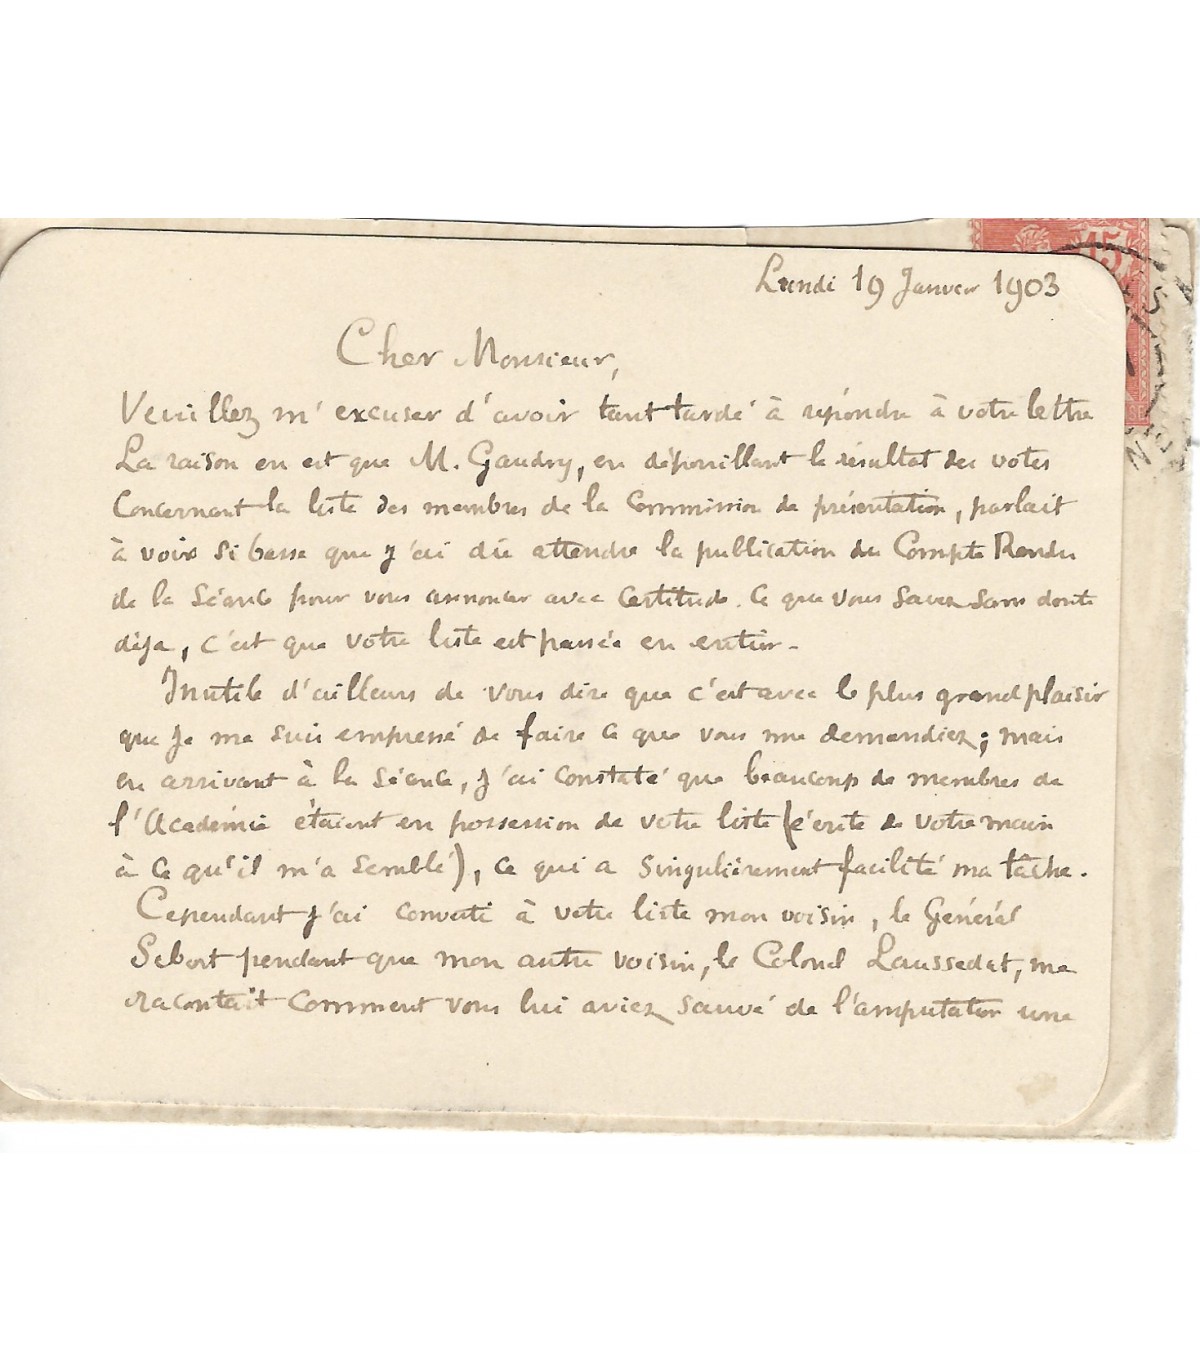 15
Lundi 19 Janvier 1903
Cher Monsieur,
Veuillez m'excuser d'avoir tant tardé à répondre à votre lettre
La raison en est que M. Gaudry, en dépouillant le résultat des votes
Concernant la liste des membres de la Commission de présentation, parlait
à voix si basse que j'ai dû attendre la publication du Compte Rendu
de la Séance pour vous annoncer avec certitude ce que vous savez sans doute
déja, c'est que votre liste est passée en entier.
Inutile d'ailleurs de vous dire que c'est avec le plus grand plaisir
que je me suis empressé de faire ce que vous me demandiez ; mais
en arrivant à la Séance, j'ai constaté que beaucoup de membres de
l'Académie étaient en possession de votre liste (écrite de votre main
à ce qu'il m'a semblé), ce qui a singulièrement facilité ma tâche.
Cependant j'ai converti à votre liste mon voisin, le Général
Sebert pendant que mon autre voisin, le Colonel Laussedat, me
racontait comment vous lui aviez sauvé de l'amputation une